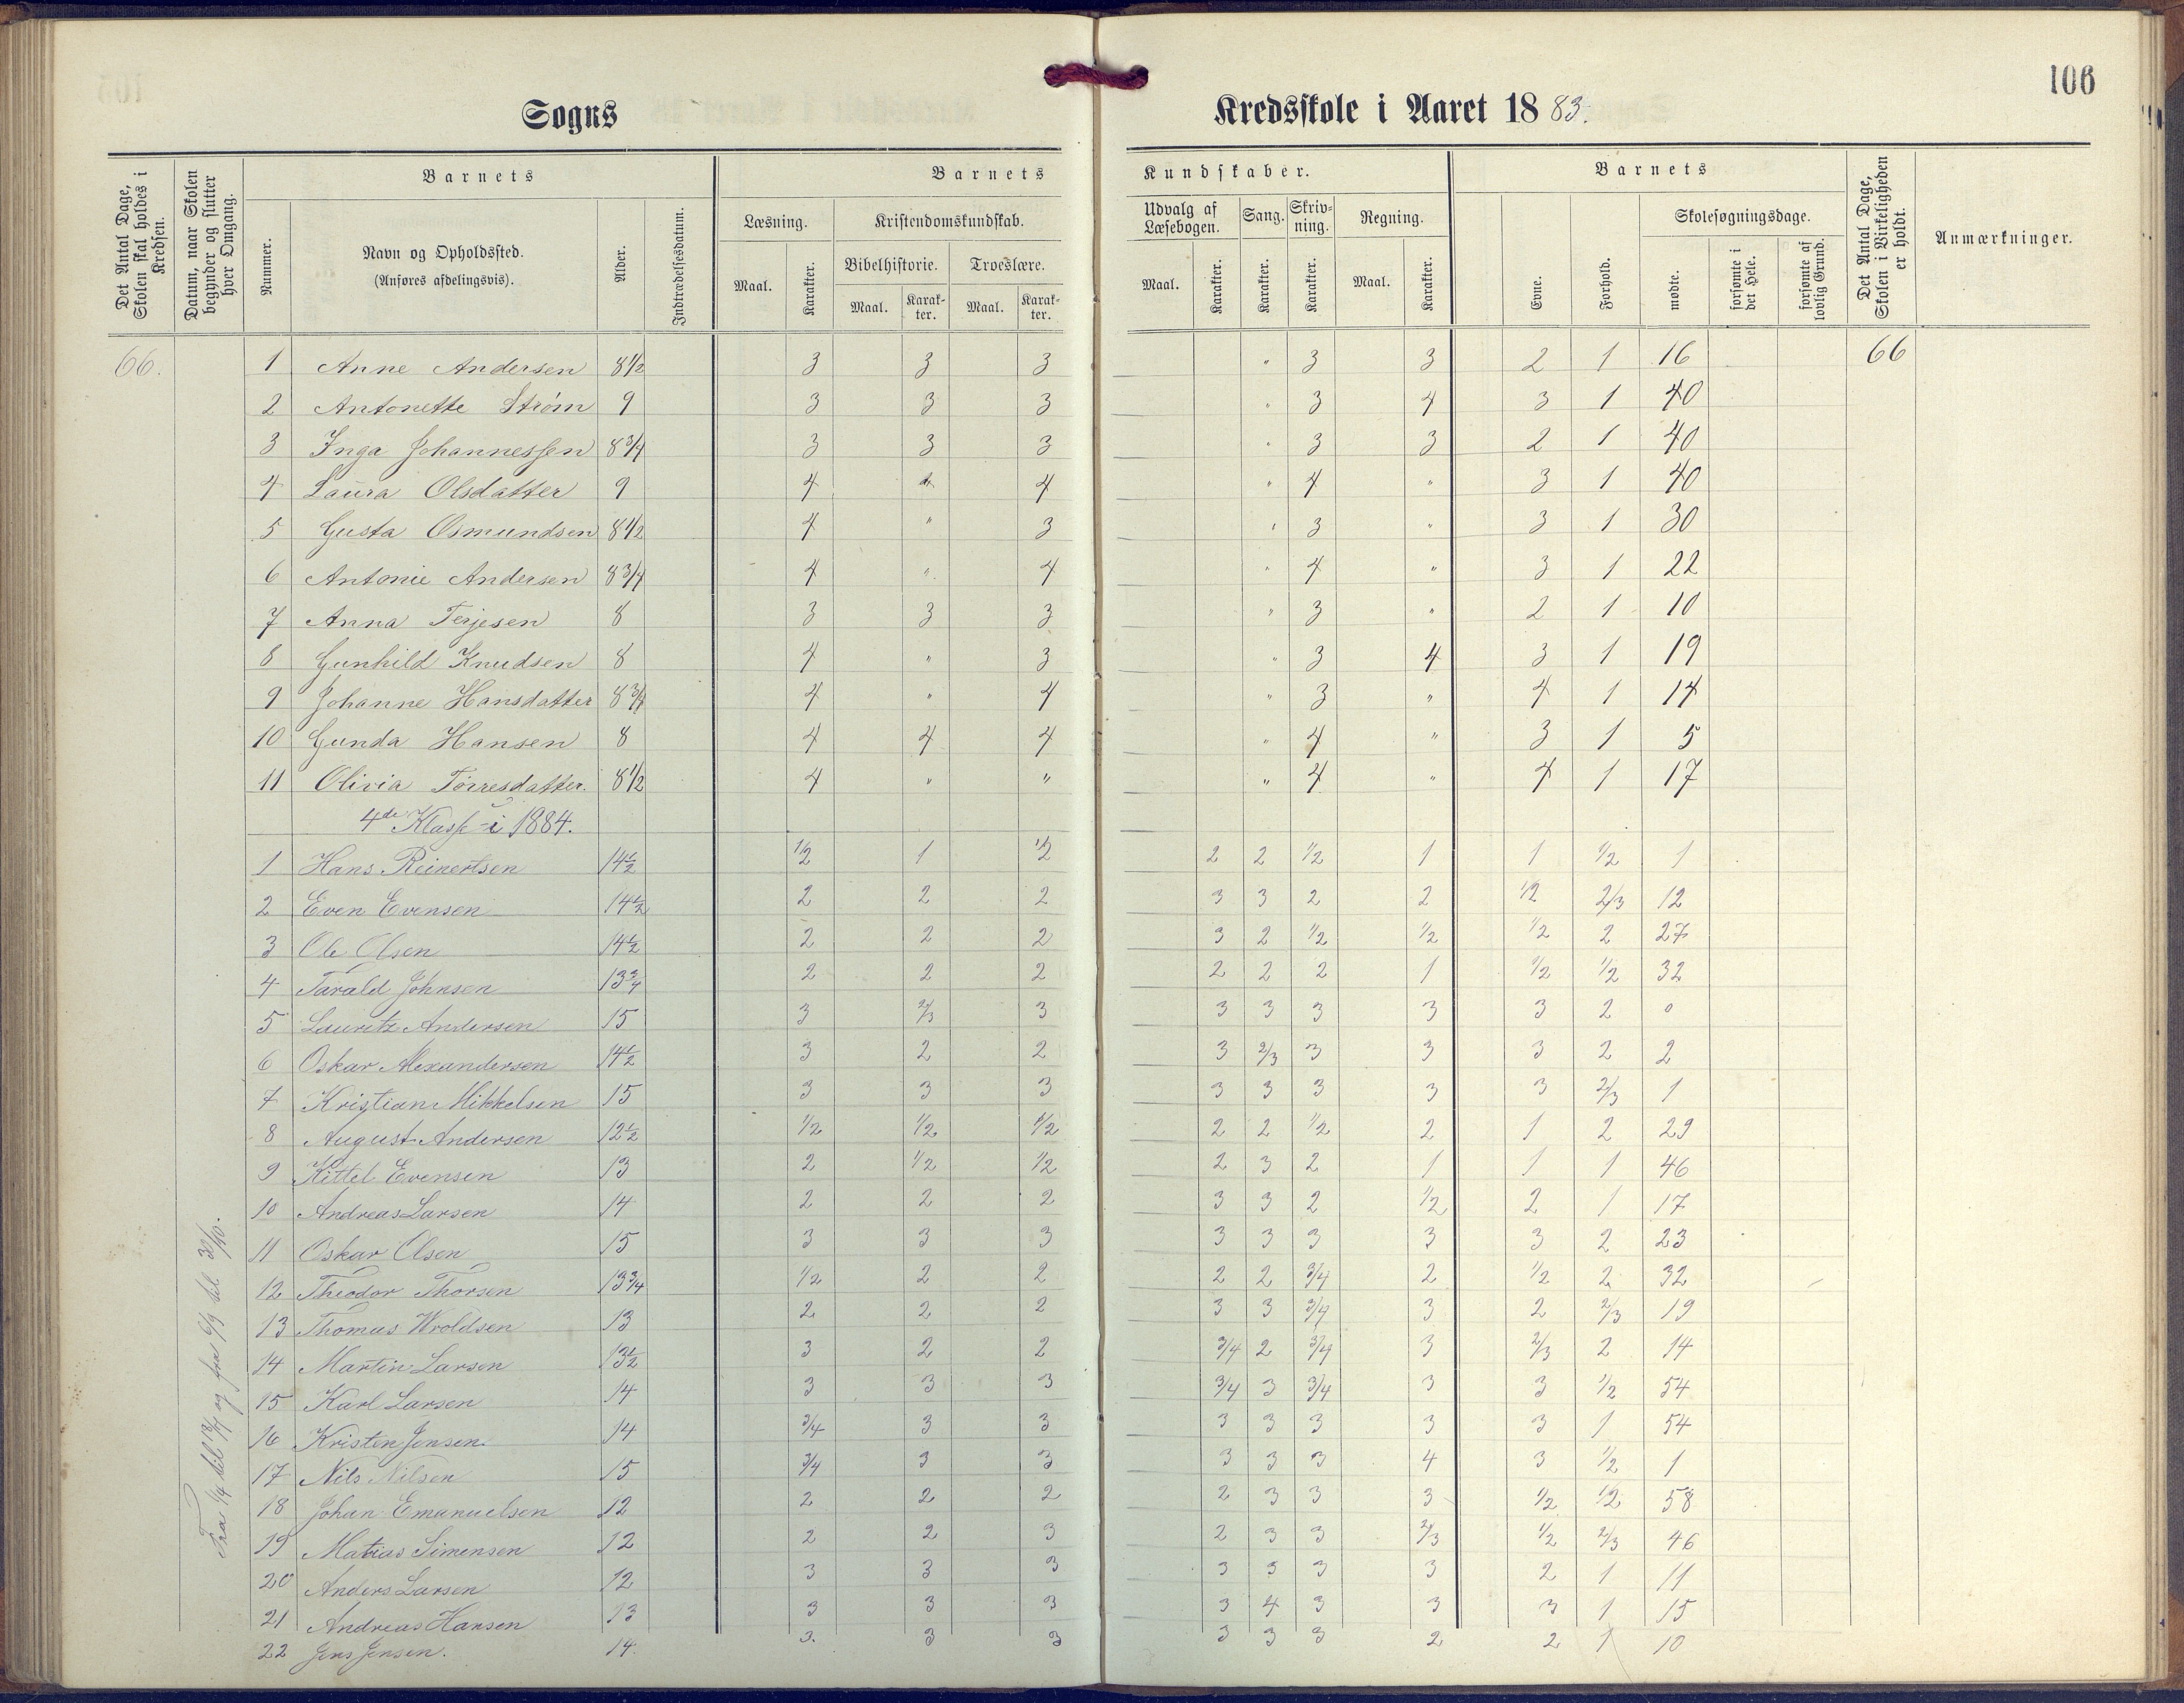 106
Sogns Kredsskole i Aaret 1883.
Det Antal Dage, Skolen skal holdes i Kredsen.
Datum, naar Skolen begynder og slutter hver Omgang.
Barnets
Nummer.
Navn og Opholdssted.
(Anføres afdelingsvis).
Alder.
Indtrædelsesdatum.
Barnets Kundskaber.
Læsning.
Maal.
Karakter.
Kristendomskundskab.
Bibelhistorie.
Maal.
Karak-
ter.
Troeslære.
Maal.
Karak-
ter.
Udvalg af
Læsebogen.
Maal.
Karakter.
Sang.
Karakter.
Skriv-
ning.
Karakter.
Regning.
Maal.
Karakter.
Barnets
Evne.
Forhold.
Skolesøgningsdage.
mødte.
forsømte i det Hele.
forsømte af lovlig Grund.
Det Antal Dage, Skolen i Virkeligheden er holdt.
Anmærkninger.
66. 1 Anne Andersen 8 1/2 3 3 3 " 3 3 2 1 16 66
2 Antonette Strøm 9 3 3 3 " 3 4 3 1 40
3 Inga Johannessen 8 3/4 3 3 3 " 3 3 2 1 40
4 Laura Olsdatter 9 4 4 4 " 4 " 3 1 40
5 Gusta Osmundsen 8 1/2 4 " 3 " 3 " 3 1 30
6 Antonie Andersen 8 3/4 4 " 4 " 4 " 3 1 22
7 Anna Terjesen 8 3 3 3 " 3 " 2 1 10
8 Gunhild Knudsen 8 4 " 3 " 3 4 3 1 19
9 Johanne Hansdatter 8 3/4 4 " 4 " 3 " 4 1 14
10 Gunda Hansen 8 4 4 4 " 4 " 3 1 5
11 Olivia Törresdatter. 8 1/2 4 " " " 4 " 4 1 17
4de Klasse i 1884.
1 Hans Reinertsen 14 1/2 1/2 1 1/2 2 2 1/2 1 1 1/2 1
2 Even Evensen 14 1/2 2 2 2 3 3 2 2 1/2 2/3 12
3 Ole Olsen 14 1/2 2 2 2 3 2 1/2 1/2 1/2 2 27
4 Tarald Johnsen 13 3/4 2 2 2 2 2 2 1 1/2 1/2 32
5 Lauritz Andersen 15 3 2/3 3 3 3 3 3 3 2 0
6 Oskar Alexandersen 14 1/2 3 2 2 3 2/3 3 3 3 2 2
7 Kristian Mikkelsen 15 3 3 3 3 3 3 3 3 2/3 1
8 August Andersen 12 1/2 1/2 1/2 1/2 2 2 1/2 2 1 2 29
9 Kittel Evensen 13 2 1/2 1/2 2 3 2 1 1 1 46
10 Andreas Larsen 14 2 2 2 3 3 2 1/2 2 1 17
11 Oskar Olsen 15 3 3 3 3 3 3 3 3 2 23
12 Theodor Thorsen 13 3/4 1/2 2 2 2 2 3/4 2 1/2 2 32
13 Thomas Wroldsen 13 2 2 2 3 3 3/4 3 2 2/3 19
14 Martin Larsen 13 1/2 3 2 2 3/4 2 3/4 3 2/3 2 14
15 Karl Larsen 14 3 3 3 3/4 3 3/4 3 3 1/2 54
16 Kristen Jensen 14 3/4 3 3 3 3 3 3 3 1 54
17 Nils Nilsen 15 3/4 3 3 3 3 3 4 3 1/2 1
18 Johan Emanuelsen 12 2 2 2 2 3 3 3 1/2 1/2 58
19 Matias Simensen 12 2 2 3 2 3 3 2/3 1/2 2/3 46
20 Anders Larsen 12 3 3 3 3 3 3 3 2 1 11
21 Andreas Hansen 13 3 3 3 3 4 3 3 3 1 15
22 Jens Jensen. 14. 3. 3 3 3 3 3 2 2 1 10
Fra 1/4 til og fra 9/9 til 30/10.